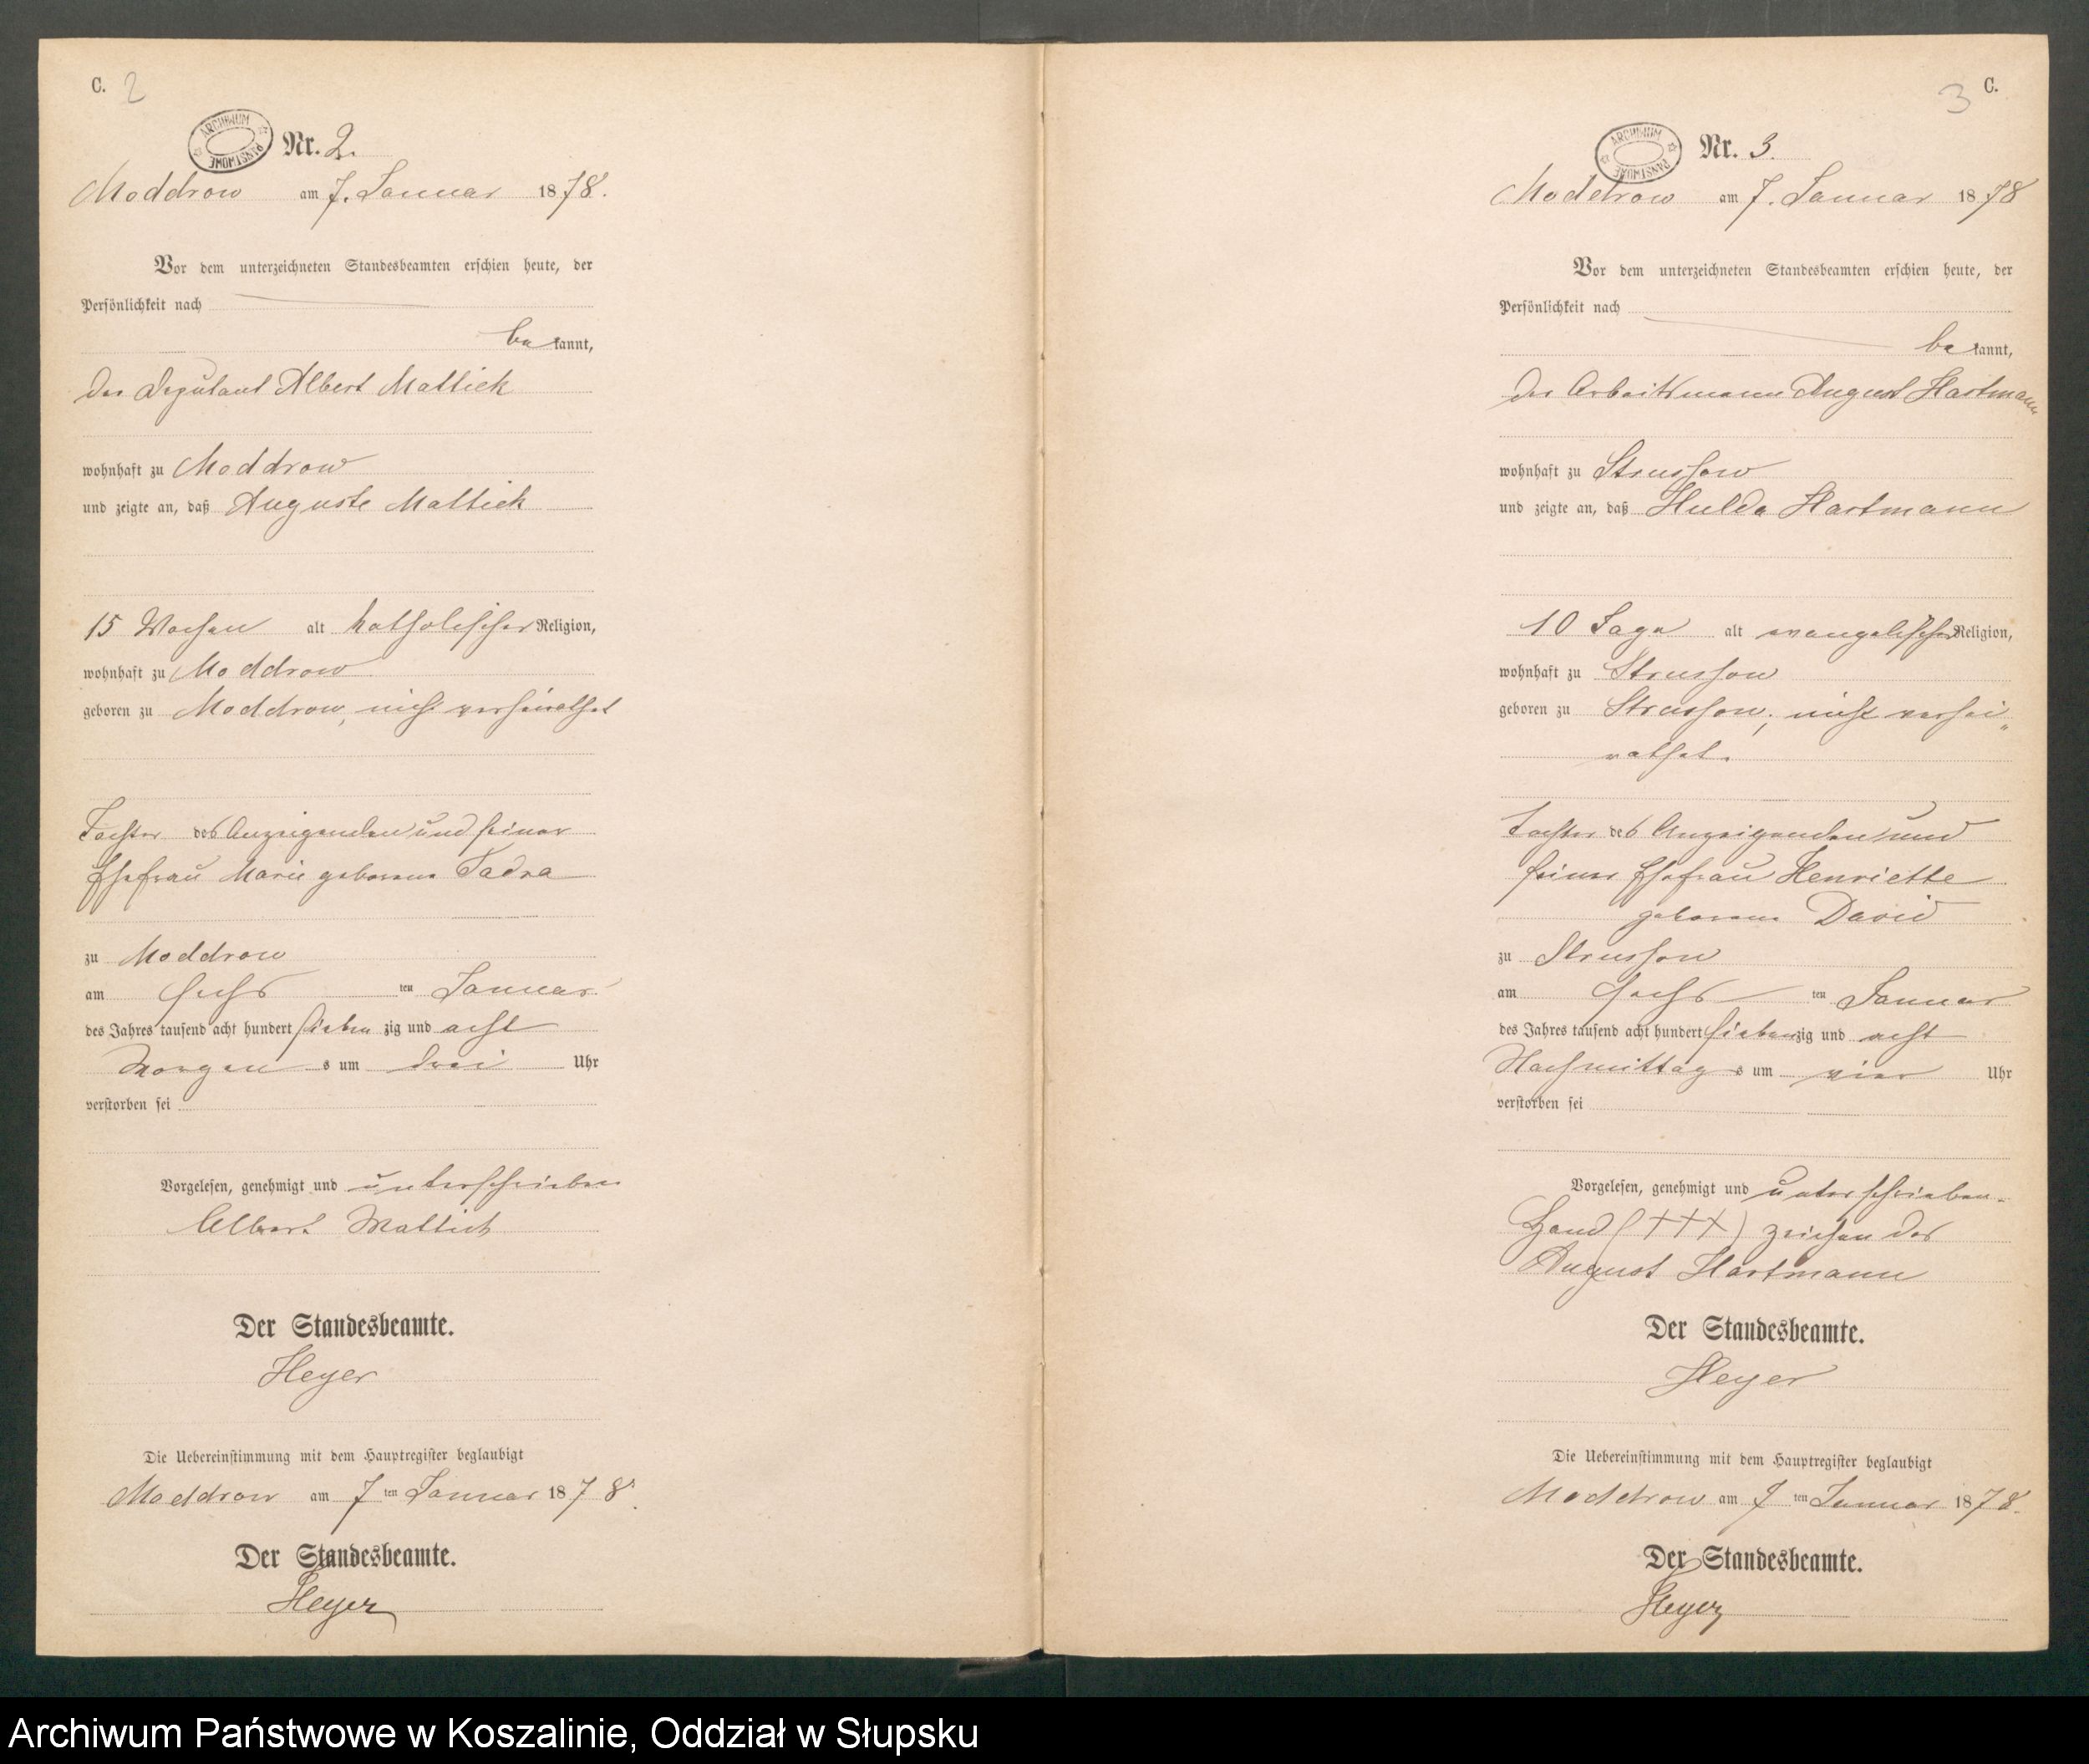 C. 2
ARCHIWUM PAŃSTWOWE
Nr. 2.
Moddrow am 7. Januar 1878.
Vor dem unterzeichneten Standesbeamten erschien heute, der
Persönlichkeit nach
be kannt,
der Deputant Albert Mattick
wohnhaft zu Moddrow
und zeigte an, daß Auguste Mattick
15 Wochen alt katholischer Religion,
wohnhaft zu Moddrow
geboren zu Moddrow, nicht verheirathet
Tochter des Anzeigenden und seiner
Ehefrau Marie geborene Tadra
zu Moddrow
am sechs ten Januar
des Jahres tausend acht hundert sieben zig und acht
Morgen s um drei Uhr
verstorben sei
Vorgelesen, genehmigt und unterschrieben
Albert Mattick
Der Standesbeamte.
Heyer
Die Uebereinstimmung mit dem Hauptregister beglaubigt
Moddrow am 7 ten Januar 1878.
Der Standesbeamte.
Heyer
3 C.
ARCHIWUM PAŃSTWOWE
Nr. 3.
Moddrow am 7. Januar 1878
Vor dem unterzeichneten Standesbeamten erschien heute, der
Persönlichkeit nach
be kannt,
der Arbeitsmann August Hartmann
wohnhaft zu Strussow
und zeigte an, daß Hulda Hartmann
10 Tage alt evangelischer Religion,
wohnhaft zu Strussow
geboren zu Strussow, nicht verhei„
rathet.
Tochter des Anzeigenden und
seiner Ehefrau Henriette
geborene David
zu Strussow
am sechs ten Januar
des Jahres tausend acht hundert siebenzig und acht
Nachmittag s um vier Uhr
verstorben sei
Vorgelesen, genehmigt und unterschrieben.
Hand (+++) zeichen des
August Hartmann
Der Standesbeamte.
Heyer
Die Uebereinstimmung mit dem Hauptregister beglaubigt
Moddrow am 7 ten Januar 1878.
Der Standesbeamte.
Heyer
Archiwum Państwowe w Koszalinie, Oddział w Słupsku